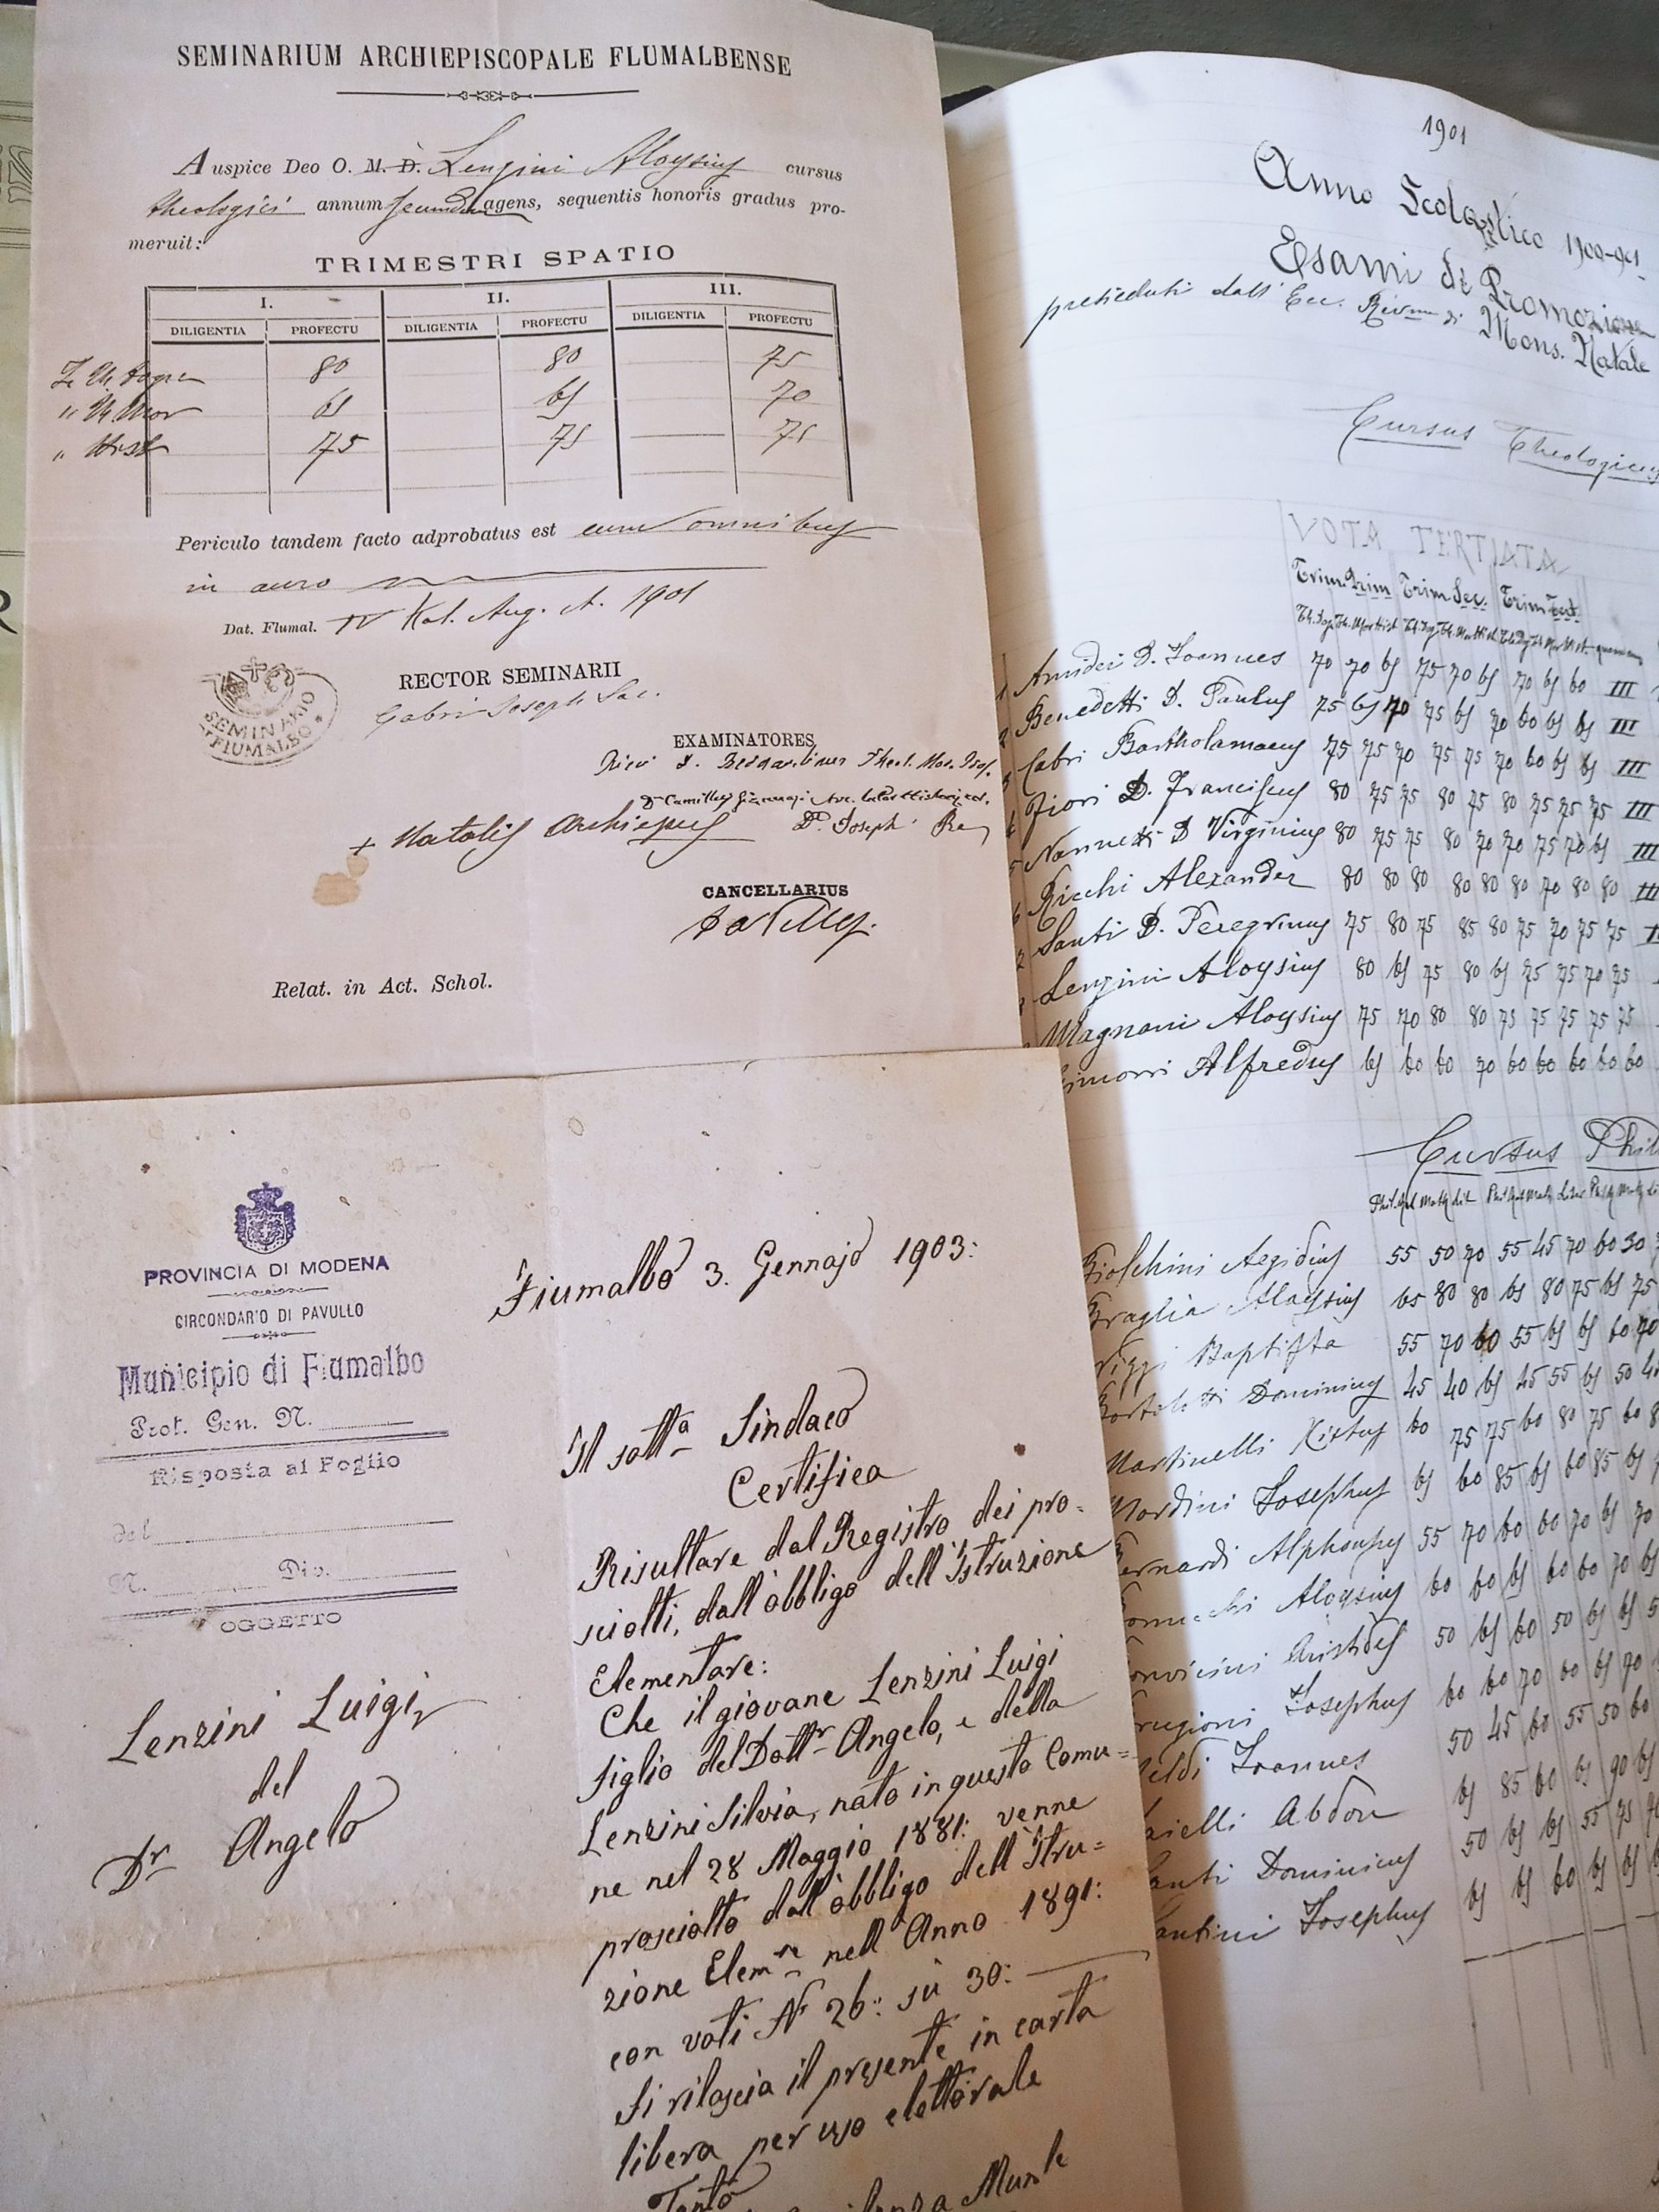 SEMINARIUM ARCHIEPISCOPALE FLUMALBENSE
Auspice Deo O. M. D. Lenzini Aloysius cursus
theologici annum secundum agens, sequentis honoris gradus pro-
meruit:
TRIMESTRI SPATIO
I. II. III.
DILIGENTIA PROFECTU DILIGENTIA PROFECTU DILIGENTIA PROFECTU
80 80 75
65 65 70
75 75 75
Periculo tandem facto adprobatus est cum omnibus
in auro
Dat. Flumal. IV Kal. Aug. A. 1901
SEMINARIO
FIUMALBO
RECTOR SEMINARII
Gabri Joseph Sac.
EXAMINATORES
+ Natalis Archiepus
CANCELLARIUS
Relat. in Act. Schol.
PROVINCIA DI MODENA
CIRCONDARIO DI PAVULLO
Municipio di Fiumalbo
Prot. Gen. N.
Risposta al Foglio
del
N. Div.
OGGETTO
Lenzini Luigi
del
Dr Angelo
Fiumalbo 3. Gennajo 1903:
Il sotta Sindaco
Certifica
Risultare dal Registro dei pro=
sciolti, dall'obbligo dell'Istruzione
Elementare:
Che il giovane Lenzini Luigi
figlio del Dottr Angelo, e della
Lenzini Silvia, nato in questo Comu=
ne nel 28 Maggio 1881: venne
prosciolto dall'obbligo dell'Istru=
zione Elemre nell'Anno 1891:
con voti N 26: su 30:
Si rilascia il presente in carta
libera per uso elettorale
Tanto
1901
Anno Scolastico 1900-901
Esami di Promozione
presieduti dall' Ecc. Mons. Natale
Cursus Theologicus
VOTA TERTIATA
Trim. Prim Trim. Sec. Trim. Tert.
Amidei D. Joannes 70 70 65 75 70 65 70 65 60 III
Benedetti D. Paulus 75 65 70 75 65 70 60 65 65 III
Cabri Bartholamaeus 75 75 70 75 75 70 60 65 65 III
Fiori D. Franciscus 80 75 75 80 75 80 75 75 75 III
Nannetti D Virginius 80 75 75 80 70 70 75 70 65 III
Ricchi Alexander 80 80 80 80 80 80 70 80 80 III
Santi D. Peregrinus 75 80 75 85 80 75 70 75 75
Lenzini Aloysius 80 65 75 80 65 75 75 70 75
Magnani Aloysius 75 70 80 80 75 75 75 75 75
Alfredus 65 60 60 70 60 60 60 60 60
Cursus Phil
Aegidius 55 50 70 55 45 70 60 30
Braglia Aloysius 65 80 80 65 80 75 65 75
Baptista 55 70 60 55 65 65 60 70
Dominicus 45 40 65 45 55 65 50
Martinelli Xistus 60 75 75 60 80 75 60
Mordini Josephus 65 60 85 65 60 85 65
Bernardi Alphonsus 55 70 60 60 70 65 70
Aloysius 60 60 65 60 60 70 65
Aristides 50 65 60 50 65 65
Josephus 60 60 70 60 65 70
Joannes 50 45 60 55 50 60
Abdon 65 85 60 65 90 65
Dominicus 50 65 65 55 75
Josephus 65 65 60 65 65